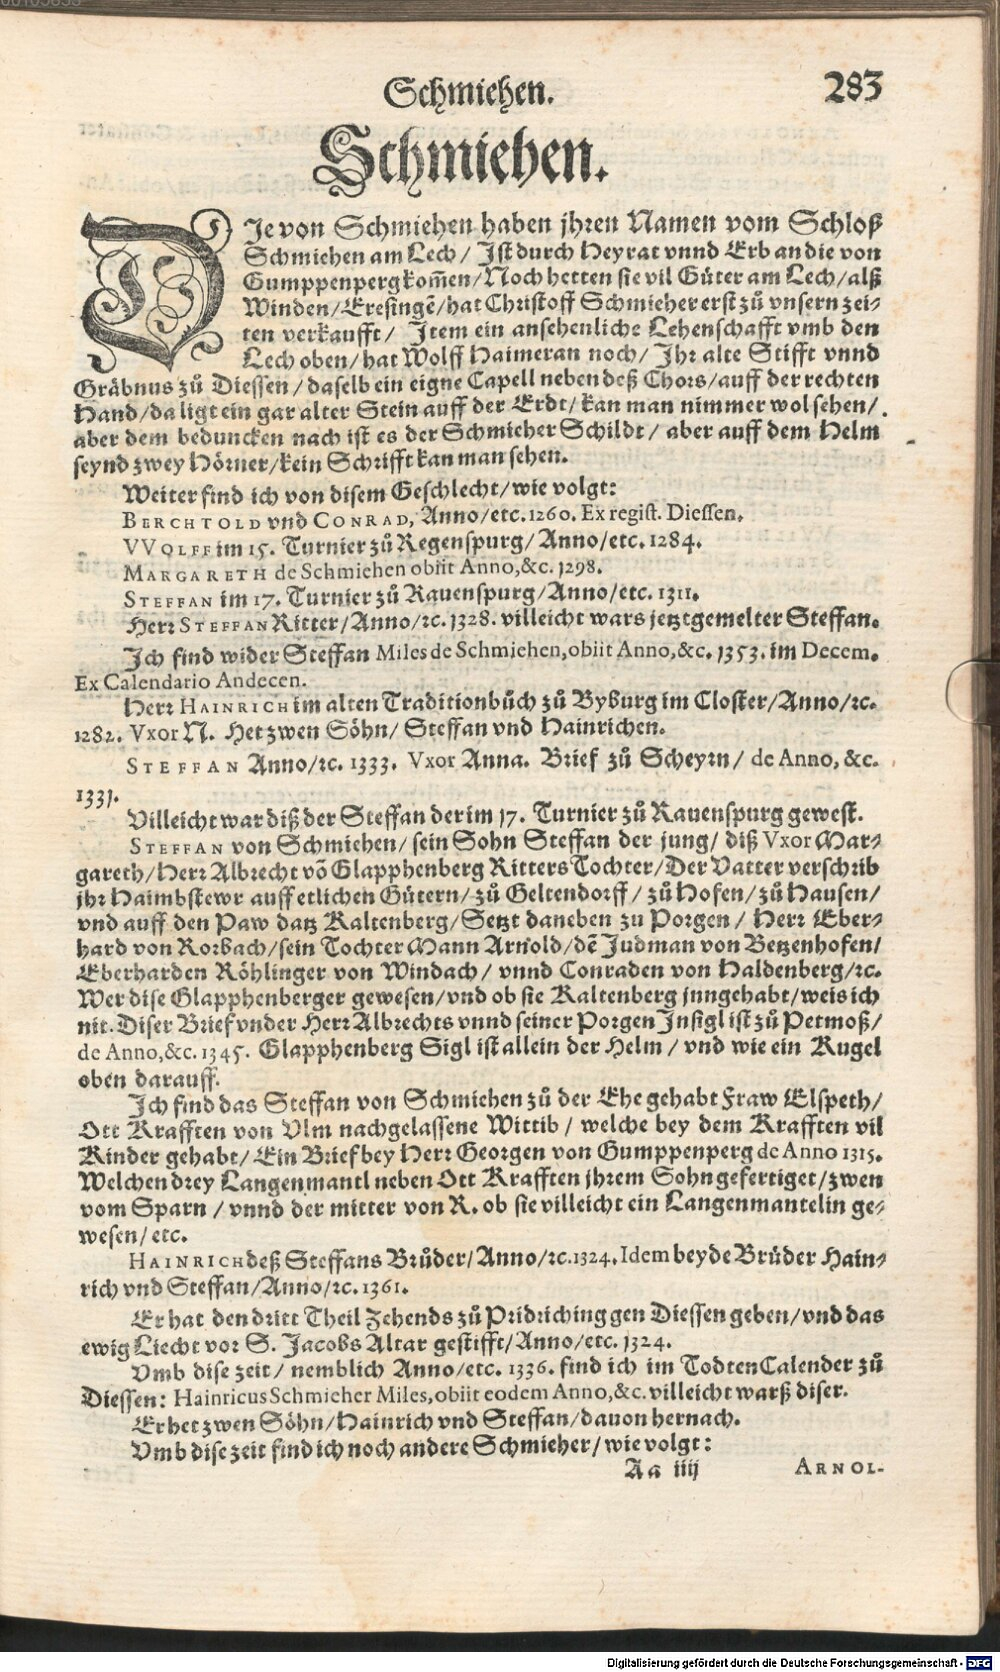 Schmiehen. 283
Schmiehen.
DJe von Schmiehen haben jhren Namen vom Schloß
Schmiehen am Lech/ Jst durch Heyrat vnnd Erb an die von
Gumppenperg kom̃en/ Noch hetten sie vil Güter am Lech/ alß
Winden/ Eresingẽ/ hat Christoff Schmieher erst zů vnsern zei-
ten verkaufft/ Jtem ein ansehenliche Lehenschafft vmb den
Lech oben/ hat Wolff Haimeran noch/ Jhr alte Stifft vnnd
Gräbnus zů Diessen/ daselb ein eigne Capell neben deß Chors/ auff der rechten
Hand/ da ligt ein gar alter Stein auff der Erdt/ kan man nimmer wol sehen/
aber dem beduncken nach ist es der Schmieher Schildt/ aber auff dem Helm
seynd zwey Hörner/ kein Schrifft kan man sehen.
Weiter find ich von disem Geschlecht/ wie volgt:
BERCHTOLD vnd CONRAD, Anno/ etc. 1260. Ex regist. Diessen.
VVOLFF im 15. Turnier zů Regenspurg/ Anno/ etc. 1284.
MARGARETH de Schmiehen obiit Anno,&c. 1298.
STEFFAN im 17. Turnier zů Rauenspurg/ Anno/ etc. 1311.
Herr STEFFAN Ritter/ Anno/ ꝛc. 1328. villeicht wars jetztgemelter Steffan.
Jch find wider Steffan Miles de Schmiehen, obiit Anno,&c. 1353. im Decem.
Ex Calendario Andecen.
Herr HAINRICH im alten Traditionbůch zů Byburg im Closter/ Anno/ ꝛc.
1282. Vxor N. Het zwen Söhn/ Steffan vnd Hainrichen.
STEFFAN Anno/ ꝛc. 1333. Vxor Anna. Brief zů Scheyrn/ de Anno, &c.
1331.
Villeicht war diß der Steffan der im 17. Turnier zů Rauenspurg gewest.
STEFFAN von Schmiehen/ sein Sohn Steffan der jung/ diß Vxor Mar-
gareth/ Herr Albrecht võ Glapphenberg Ritters Tochter/ Der Vatter verschrib
jhr Haimbstewr auff etlichen Gütern/ zů Geltendorff/ zů Hofen/ zů Hausen/
vnd auff den Paw datz Kaltenberg/ Setzt daneben zu Porgen/ Herr Eber-
hard von Rorbach/ sein Tochter Mann Arnold/ dẽ Judman von Betzenhofen/
Eberharden Röhlinger von Windach/ vnnd Conraden von Haldenberg/ ꝛc.
Wer dise Glapphenberger gewesen/ vnd ob sie Kaltenberg jnngehabt/ weis ich
nit. Diser Brief vnder Herr Albrechts vnnd seiner Porgen Jnsigl ist zů Petmoß/
de Anno,&c. 1345. Glapphenberg Sigl ist allein der Helm/ vnd wie ein Kugel
oben darauff.
Jch find das Steffan von Schmiehen zů der Ehe gehabt Fraw Elspeth/
Ott Krafften von Vlm nachgelassene Wittib/ welche bey dem Krafften vil
Kinder gehabt/ Ein Brief bey Herr Georgen von Gumppenperg de Anno 1315.
Welchen drey Langenmantl neben Ott Krafften jhrem Sohn gefertiget/ zwen
vom Sparn/ vnnd der mitter von R. ob sie villeicht ein Langenmantelin ge-
wesen/ etc.
HAINRICH deß Steffans Brůder/ Anno/ ꝛc. 1324. Idem beyde Brüder Hain-
rich vnd Steffan/ Anno/ ꝛc. 1361.
Er hat den dritt Theil Zehends zů Pridriching gen Diessen geben/ vnd das
ewig Liecht vor S. Jacobs Altar gestifft/ Anno/ etc. 1324.
Vmb dise zeit/ nemblich Anno/ etc. 1336. find ich im Todten Calender zů
Diessen: Hainricus Schmieher Miles, obiit eodem Anno,&c. villeicht warß diser.
Er het zwen Söhn/ Hainrich vnd Steffan/ dauon hernach.
Vmb dise zeit find ich noch andere Schmieher/ wie volgt:
Aa iiij ARNOL-
Digitalisierung gefördert durch die Deutsche Forschungsgemeinschaft - DFG